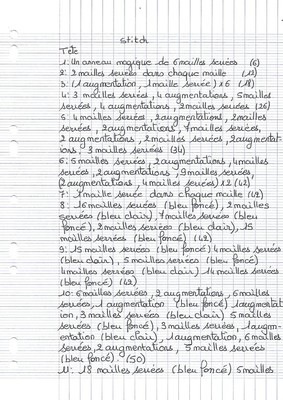 Stitch
Tête
1: Un anneau magique de 6 mailles serrées (6)
2: 2 mailles serrées dans chaque maille (12)
3: (1 augmentation, 1 maille serrée) x 6 (18)
4: 3 mailles serrées, 4 augmentations, 5 mailles
serrées, 4 augmentations, 2 mailles serrées (26)
5: 4 mailles serrées, 2 augmentations, 2 mailles
serrées, 2 augmentations, 7 mailles serrées,
2 augmentations, 2 mailles serrées, 2 augmentat-
ions, 3 mailles serrées (34)
6: 5 mailles serrées, 2 augmentations, 4 mailles
serrées, 2 augmentations, 9 mailles serrées,
(2 augmentations, 4 mailles serrées) x 2 (42)
7: 1 maille serrée dans chaque maille (42)
8: 16 mailles serrées (bleu foncé), 2 mailles
serrées (bleu clair), 7 mailles serrées (bleu
foncé), 2 mailles serrées (bleu clair), 15
mailles serrées (bleu foncé) (42)
9: 15 mailles serrées (bleu foncé) 4 mailles serrées
(bleu clair), 5 mailles serrées (bleu foncé)
4 mailles serrées (bleu clair) 14 mailles serrées
(bleu foncé) (42)
10: 6 mailles serrées, 2 augmentations, 6 mailles
serrées, 1 augmentation (bleu foncé) 1 augmentat
ion, 3 mailles serrées (bleu clair) 5 mailles
serrées (bleu foncé), 3 mailles serrées, 1 augm-
entation (bleu clair), 1 augmentation, 6 mailles
serrées, 2 augmentations, 5 mailles serrées
(bleu foncé). (50)
11: 18 mailles serrées (bleu foncé) 5 mailles